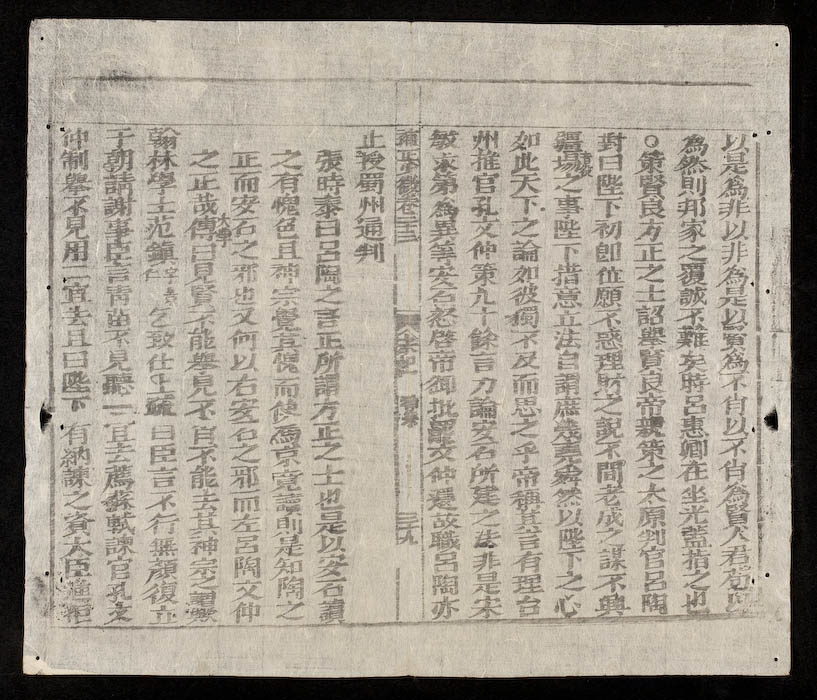 以是為非以非為是以賢為不肖以不肖為賢人君苟以
為然則邦家之覆誠不難矣時呂惠卿在坐光蓋指之也
○策賢良方正之士詔舉賢良帝親策之太原判官呂陶
對曰陛下初卽位願不惑理財之說不間老成之謀不興
疆埸之事陛下措意立法自謂庶幾堯舜然以陛下之心
如此天下之論如彼獨不反而思之乎帝稱其言有理台
州推官孔文仲策九十餘言力論安石所建之法非是宋
敏求第為異等安石怒啓帝御批罷文仲還故職呂陶亦
卷之三
三十九
止授蜀州通判
張時泰曰呂陶之言正所謂方正之士也是以安石讀
之有愧色且神宗覺其愧而使馮京竟讀則是知陶之
正而安石之邪也又何以右安石之邪而左呂陶文仲
之正哉傳曰見賢不能舉見不肖不能去其神宗之謂歟
大學
翰林學士范鎮乞致仕上疏曰臣言不行無顔復立
于朝請謝事臣言靑苗不見聽一宜去薦蘇軾諫官孔文
仲制舉不見用二宜去且曰陛下有納諫之資大臣進拒